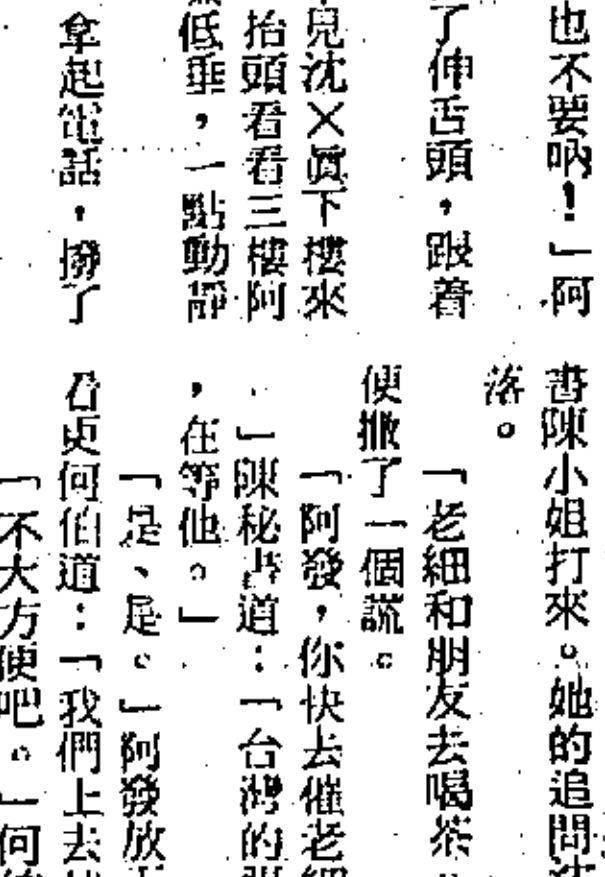 也不要吶！」阿
了伸舌頭，跟着
見沈×眞下樓來
抬頭看看三樓阿
低垂，一點動靜
拿起電話，撥了
書陳小姐打來。她的追問
落。
「老細和朋友去喝茶
便撒了一個謊。
「阿發，你快去催老細
」陳秘書道：「台灣的
，在等他。」
「是、是。」阿發放
看更何伯道：「我們上去
「不大方便吧。」何